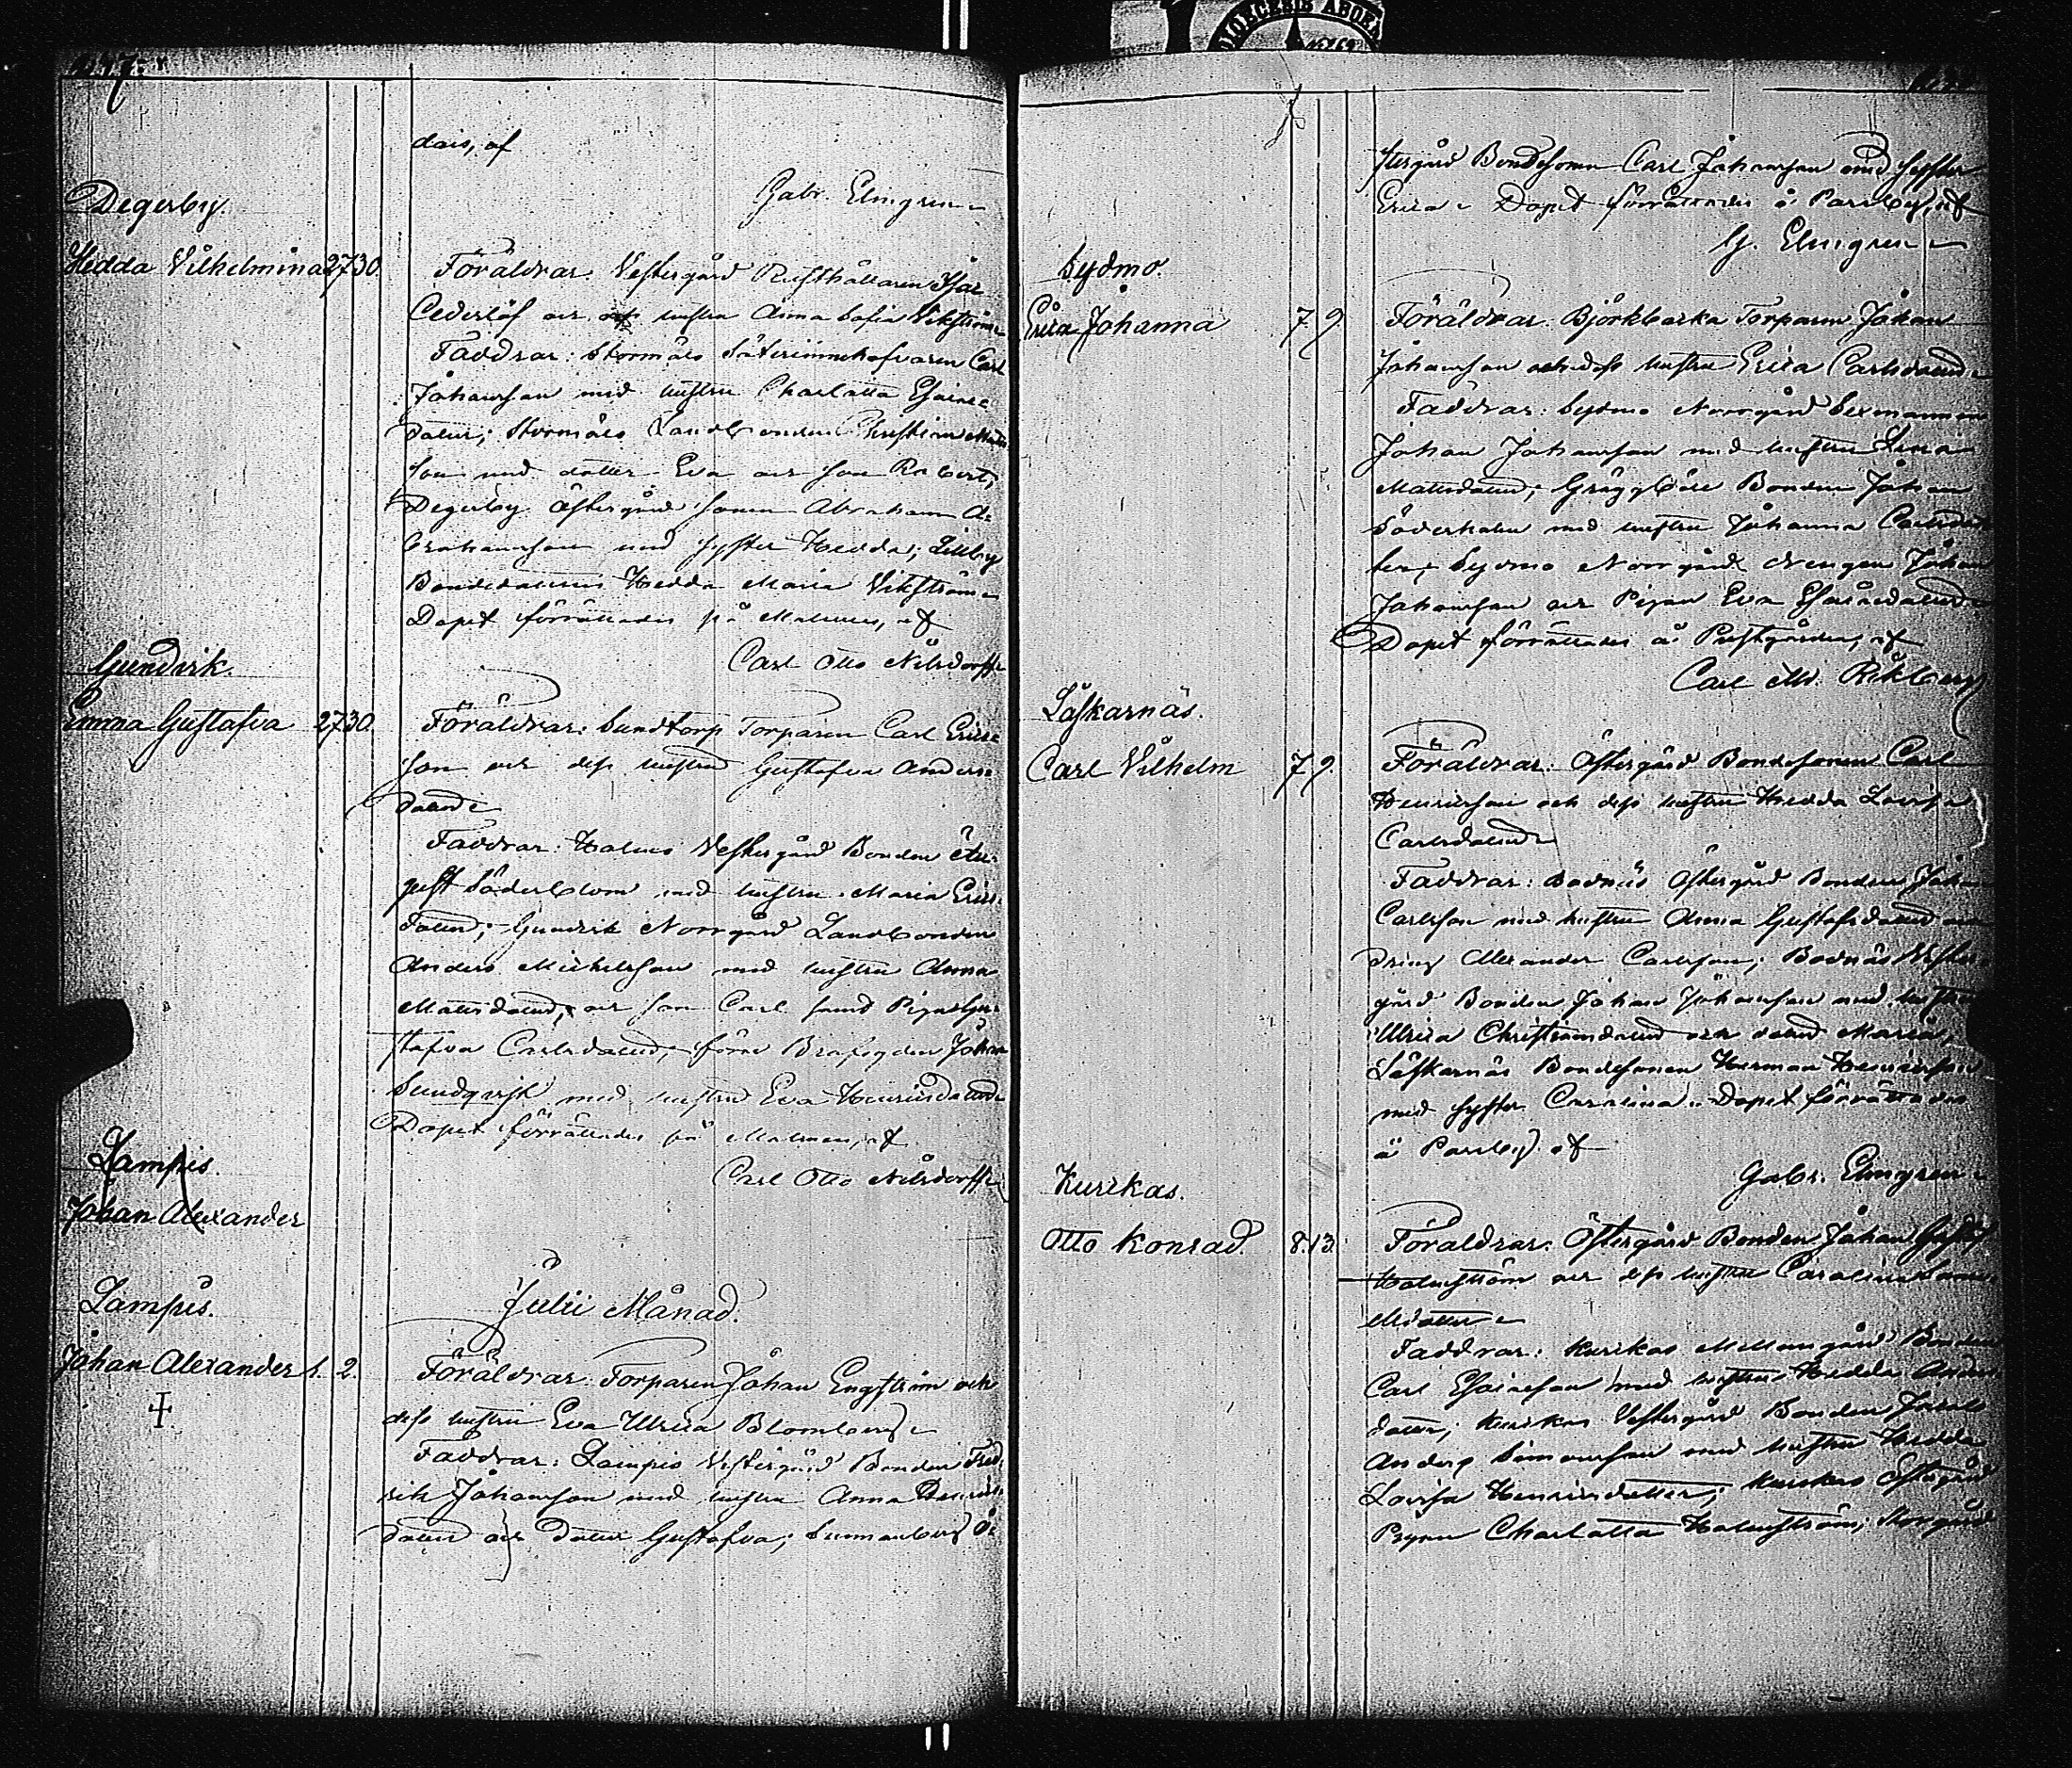 dais, af
Gabr. Elmgren
Degerby.
Hedda Vilhelmina 27 30.
Föräldrar: Vestergård Rusthållaren Isac
Cederlöf och hustru Anna Sofia Vikström
Faddrar: Stormälö Säteriinnehafvaren Carl
Johansson med hustru Charlotta Esaias
dotter; Stormälö Landbonden Christian
son med dotter Eva och son Robert;
Degerby Östergård sonen Abraham A-
brahamsson med syster Hedda; Lillby
Bondedottren Hedda Maria Vikström
Dopet förrättades på Malmen, af
Carl Otto Nilsdorff
Gundvik.
Emma Gustafva 27 30.
Föräldrar: Sundtorp Torparen Carl Erics
son och dess hustru Gustafva Anders
dotter
Faddrar: Vestergård Bonden Au-
gust Söderblom med hustru Maria Erics
dotter; Gundvik Norrgård Landbonden
Anders Michelsson med hustru Anna
Mattsdotter, och son Carl samt Pigan Gu-
stafva Carlsdotter, förre Johan
Sundqvist med hustru Eva Henricsdotter
Dopet förrättades på Malmen, af
Carl Otto Nilsdorff
Lampis.
Johan Alexander
Julii Månad.
Lampis.
Johan Alexander 1. 2.
Föräldrar: Torparen Johan Engström och
dess hustru Eva Ulrica Blomberg
Faddrar: Lampis Vestergård Bonden Fred-
rik Johansson med hustru Anna Henrics
dotter och dotter Gustafva;
Stergård Bondesonen Carl Johansson med syster
Erica. Dopet förrättades å Parsby, af
G. Elmgren
Sydmo.
Erica Johanna 7 9.
Föräldrar: Björkbacka Torparen Johan
Johansson och dess hustru Erica Carlsdotter
Faddrar: Sydmo Norrgård Sexmannen
Johan Johansson med hustru
Mattsdotter; Gräggböle Bonden Johan
Söderholm med hustru Johanna
Sydmo Norrgård drengen Johan
Johansson och Pigan Eva Esaiædotter
Dopet förrättades å Prestgården, af
Carl M. Rikberg
Låskarnäs.
Carl Vilhelm 7 9.
Föräldrar: Östergård Bondesonen Carl
Henricsson och dess hustru Hedda Lovisa
Carlsdotter
Faddrar: Bodnäs Östergård Bonden Johan
Carlsson med hustru Anna Gustafsdotter
dreng Alexander Carlsson; Bodnäs Vester
gård Bonden Johan Johansson med hustru
Ulrica Christiansdotter och dotter Maria;
Låskarnäs Bondesonen Herman Henricsson
med syster Carolina. Dopet förrättades
å Parsby, af
Gabr. Elmgren
Kurikas.
Otto Konrad 8. 13.
Föräldrar: Östergård Bonden Johan Gustaf
Holmström och dess hustru Carolina
Faddrar: Kurikas Mellangård Bonden
Carl Esaiesson med hustru Hedda Anders
dotter; Kurikas Vestergård Bonden
Anders Simonsson med hustru Hedda
Lovisa Henricsdotter; Kurikas Östergård
Pigan Charlotta Holmström; Storgård